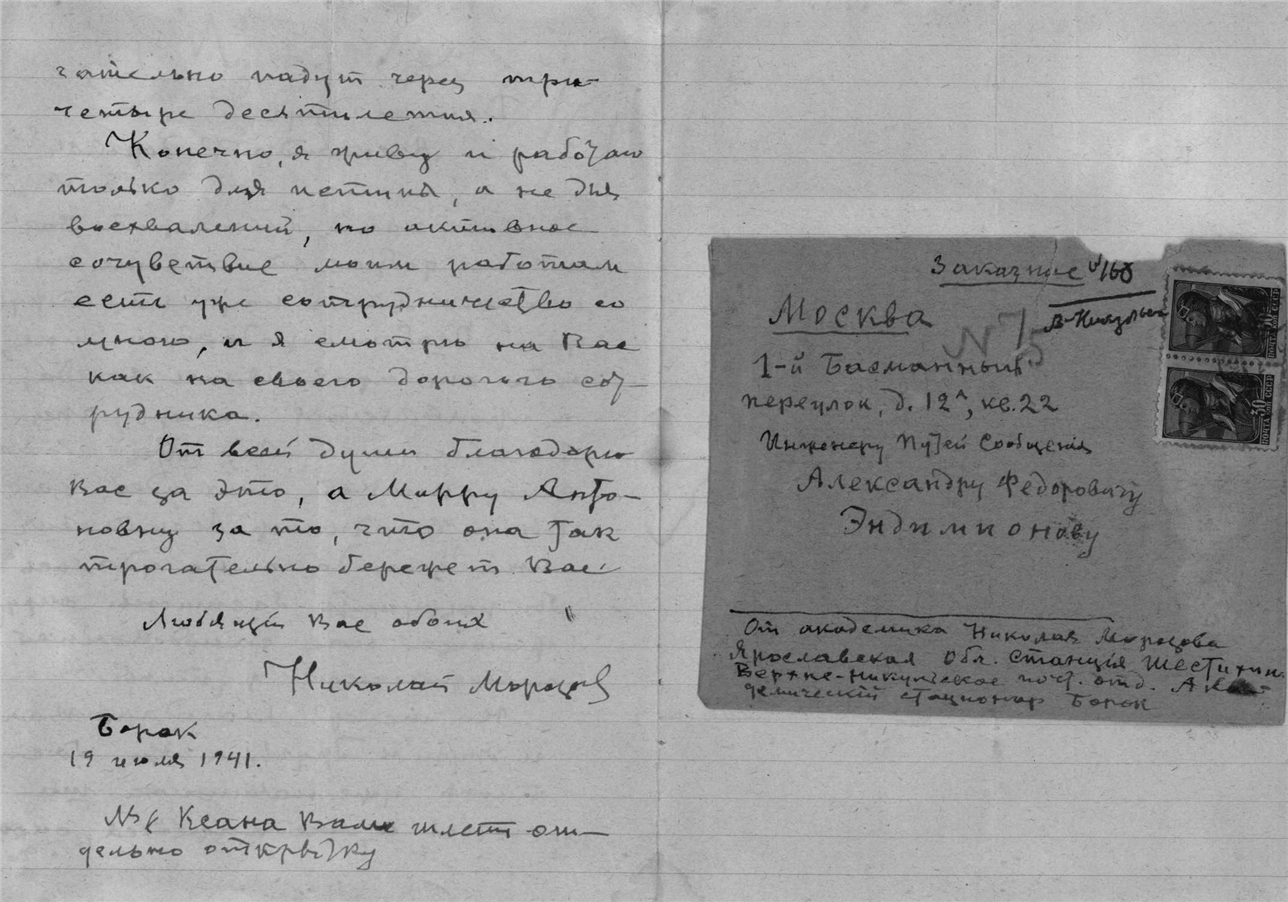 чательно падут через три-
четыре десятилетия.
Конечно, я живу и работаю
только для истины, а не для
восхвалений, но активное
сочувствие моим работам
есть уже сотрудничество со
мною, и я смотрю на Вас
как на своего дорогого сот-
рудника.
От всей души благодарю
Вас за это, а Мирру Анто-
новну за то, что она так
трогательно бережет Вас
Любящий Вас обоих
Николай Морозов
Борок
19 июля 1941.
Ксана Вам шлет от-
дельно открытку
Заказное №160
В-Никульск
Москва
N 75
1-й Басманный
переулок, д. 12А, кв. 22
Инженеру Путей Сообщения
Александру Федоровичу
Эндимионову
От академика Николая Морозова
Ярославская обл. станция Шестихин.
Верхне-Никульское почт. отд. Ака-
демический стационар Борок
ПОЧТА СССР
30
ПОЧТА СССР